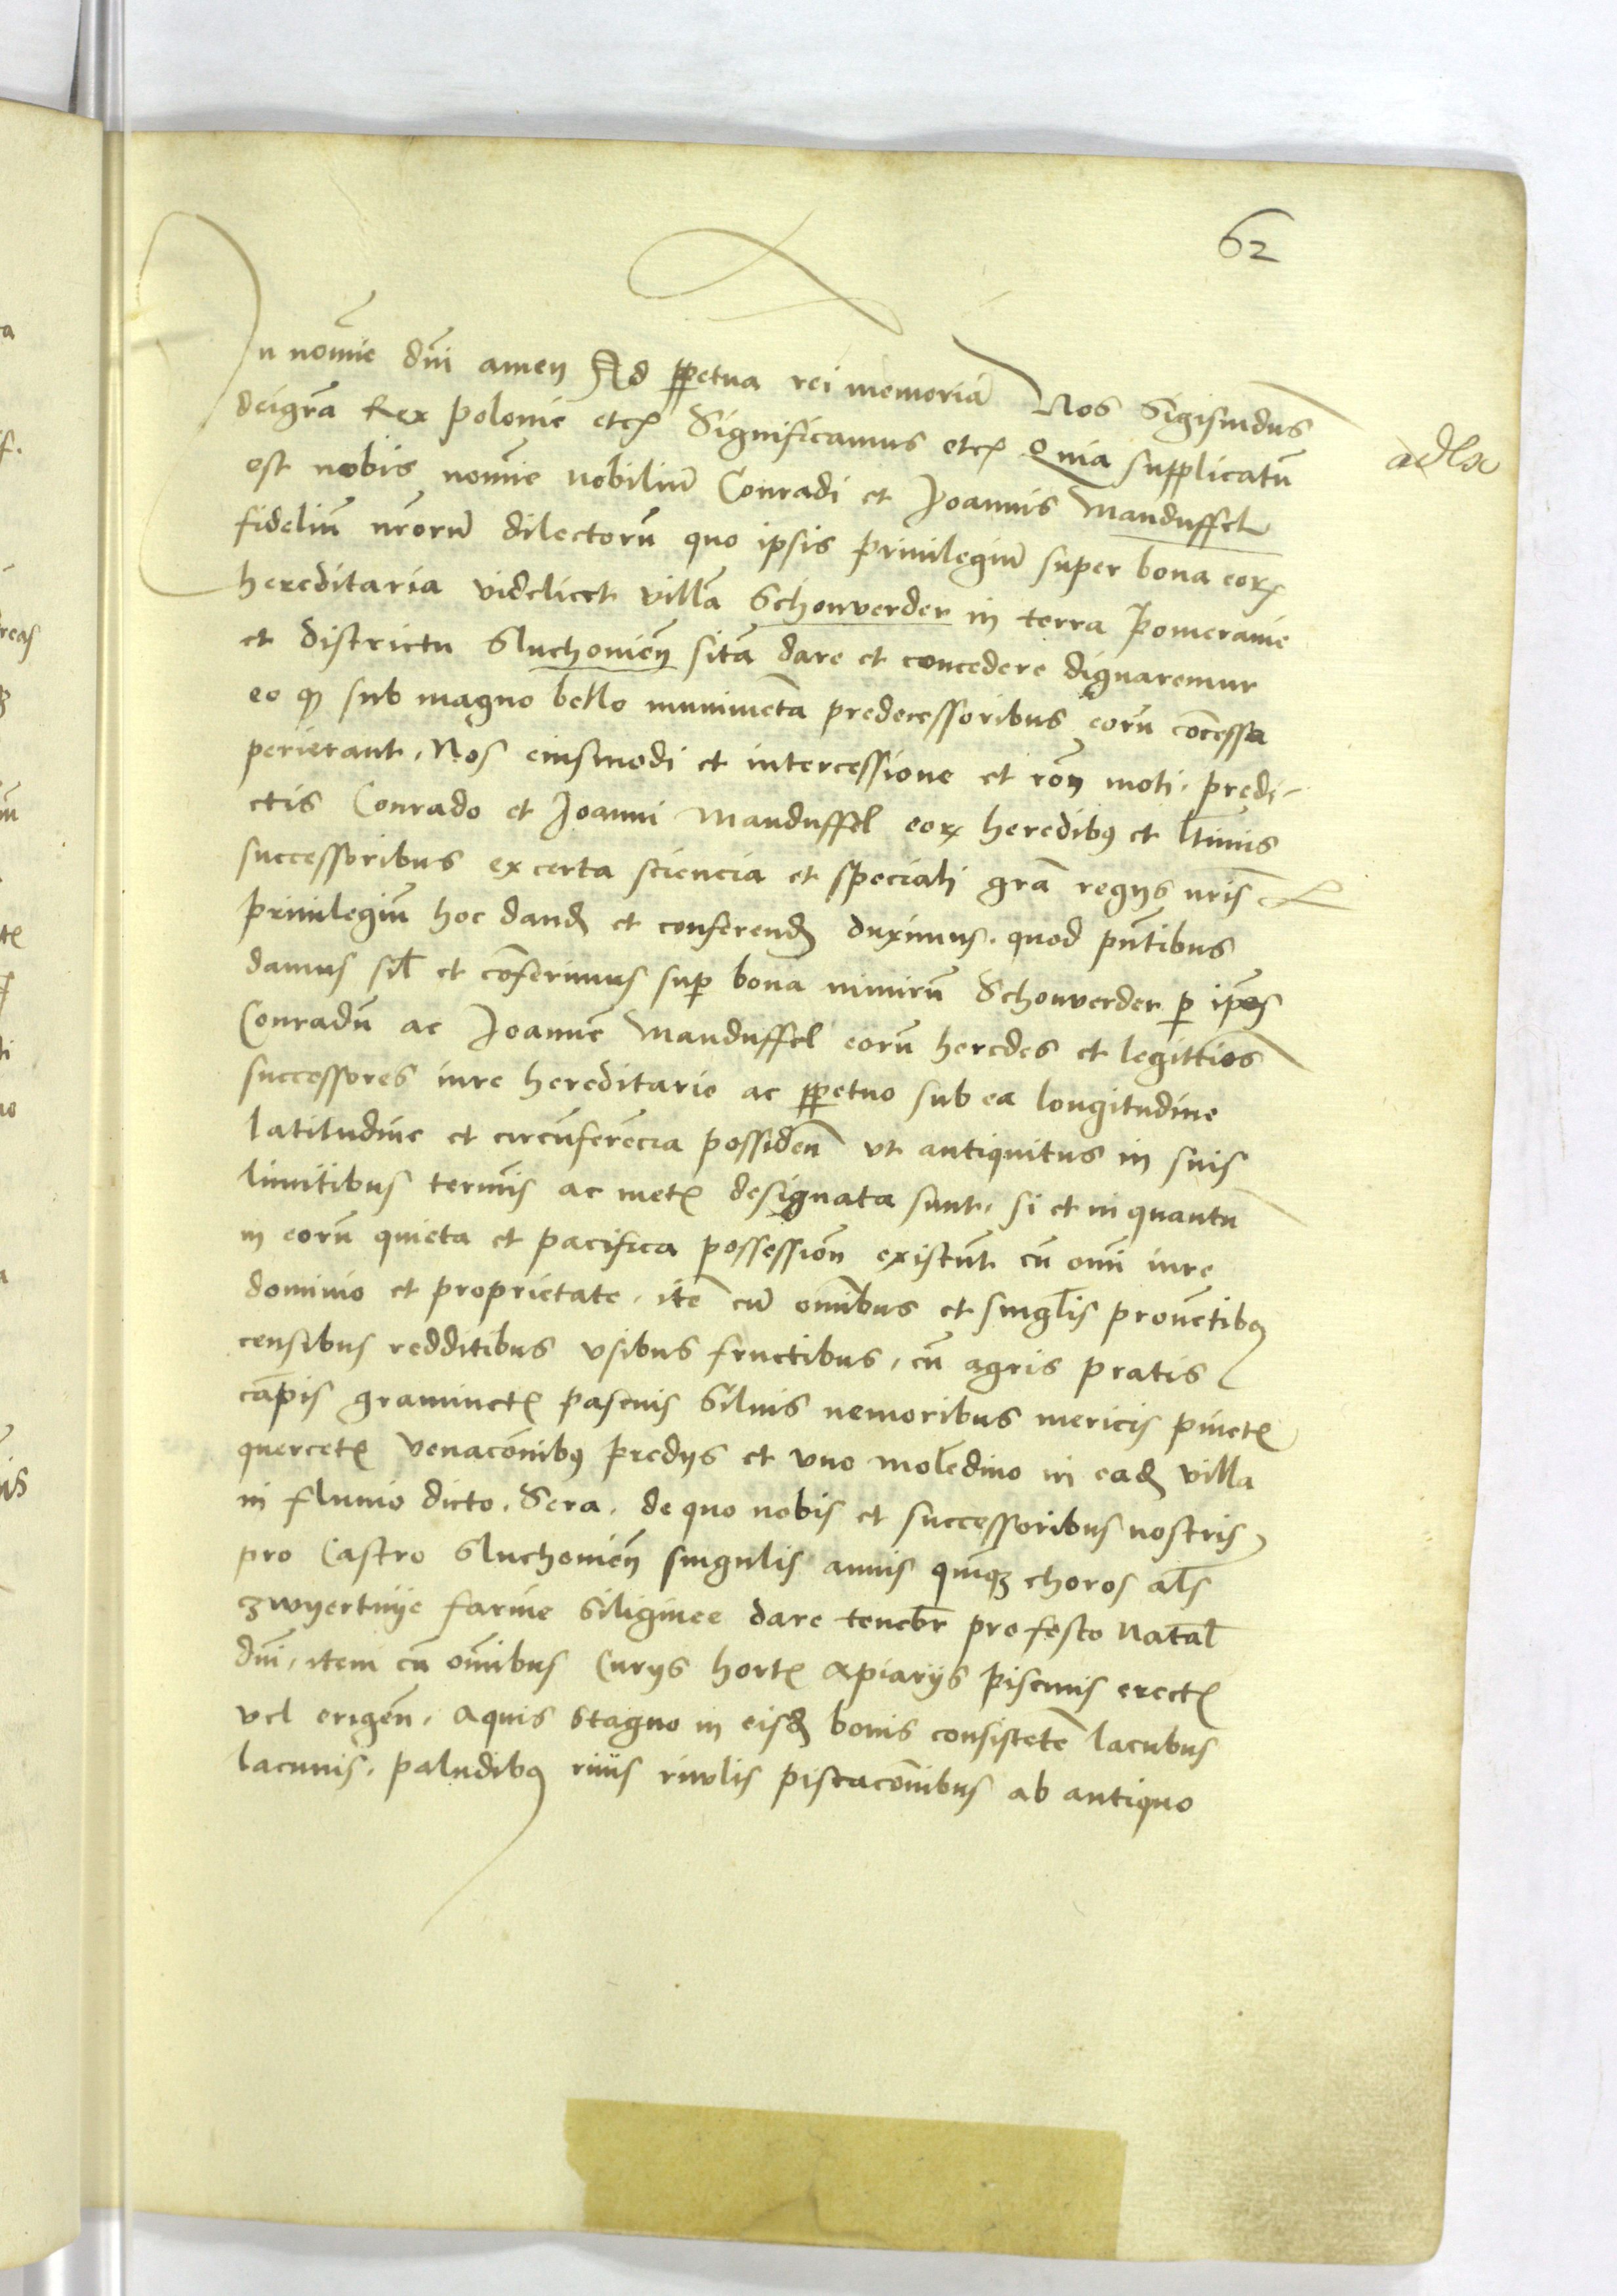 62
In nomīe dn̄i amen Ad ꝑpetua rei memoriā Nos Sigismūdus
deigrā Rex Polonie etcꝭ Significamus etcꝭ Quia supplicatū
est nobis nomīe nobiliū Conradi et Joannis Manduffel
adłx
fideliū nr̄orū dilectorū quo ipsis priuilegiū super bona eoꝝ
hereditaria videlicet villā Schonverder in terra Pomeranie
et districtu Sluchonień sitā dare et concedere dignaremur
eo ꝙ sub magno bello munimēta predecessoribus eorū cōcessa
perierant, Nos eiusmodi et intercessione et rōn moti, predi-
ctis Conrado et Joanni Manduffel eoꝝ heredibꝰ et ltīmis
successoribus ex certa sciencia et speciali grā regijs nr̄is
priuilegiū hoc dand̄ et conferend̄ duximus, quod pn̄tibus
damus sił et cōferimus suꝑ bona nimirū Schonverder ꝑ ip̄os
Conradū ac Joannē Manduffel eorū heredes et legittīos
successores iure hereditario ac ꝑpetuo sub ea longitudine
latitudine et circūferēcia possideń vt antiquitus in suis
limitibus termīs ac metꝭ designata sunt, si et in quantū
in eorū quieta et pacifica possessiōn existūt cū om̄i iure
dominio et proprietate, itē cū om̄ibus et singłis prouētibꝰ
censibus redditibus vsibus fructibus, cū agris pratis
cāpis graminetꝭ pascuis siluis nemoribus mericis pinetꝭ
quercetꝭ venacōnibꝰ predijs et vno molēdino in ead̄ villa
in fluuio dicto, Sera, de quo nobis et successoribus nostris
pro Castro Sluchonień singulis annis quīqꝫ choros ałs
zwyertnije farine siliginee dare tenebr̄ pro festo Natał
dn̄i, item cū om̄ibus Curijs hortꝭ apiarijs piscinis erectꝭ
vel erigeń, aquis stagno in eisd̄ bonis consistētē lacubus
lacunis, paludibꝰ riuis riuulis piscacōnibus ab antiquo